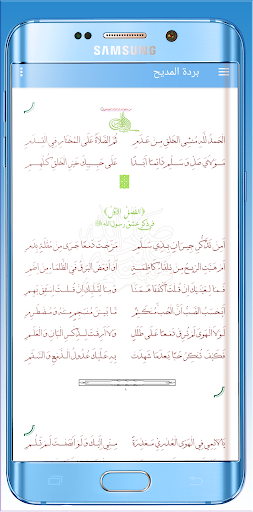 SAMSUNG
بردة المديح
الحمد لله منشي الخلق من عدم ثم الصلاة على المختار في القدم
مولاي صل وسلم دائما أبدا على حبيبك خير الخلق كلهم
الفصل الأول
في ذكر عشق رسول الله ﷺ
أمن تذكر جيران بذي سلم مزجت دمعا جرى من مقلة بدم
أم هبت الريح من تلقاء كاظمة أو أومض البرق في الظلماء من إضم
فما لعينيك إن قلت اكففا همتا وما لقلبك إن قلت استفق يهم
أيحسب الصب أن الحب منكتم ما بين منسجم منه ومضطرم
لولا الهوى لم ترق دمعا على طلل ولا أرقت لذكر البان والعلم
فكيف تنكر حبا بعد ما شهدت به عليك عدول الدمع والسقم
يا لائمي في الهوى العذري معذرة مني إليك ولو أنصفت لم تلم